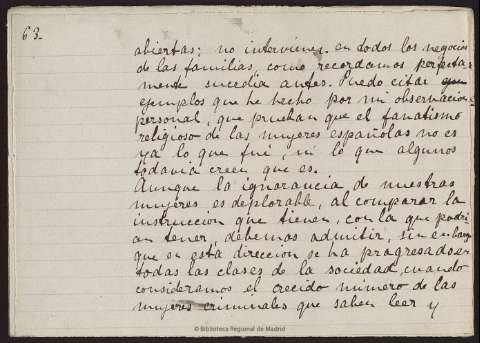 63.
abiertas; no intervienen en todos los negocios
de las familias, como recordamos perfecta-
mente sucedia antes. Puedo citar
ejemplos que he hecho por mi observacion
personal, que prueban que el fanatismo
religioso de las mujeres españolas no es
ya lo que fué, ni lo que algunos
todavia creen que es.
Aunque la ignorancia de nuestras
mujeres es deplorable, al comparar la
instruccion que tienen, con la que podri
an tener, debemos admitir, sin embargo
que en esta direccion se ha progresado en
todas las clases de la sociedad, cuando
consideramos el crecido número de las
mujeres criminales que saben leer y
© Biblioteca Regional de Madrid